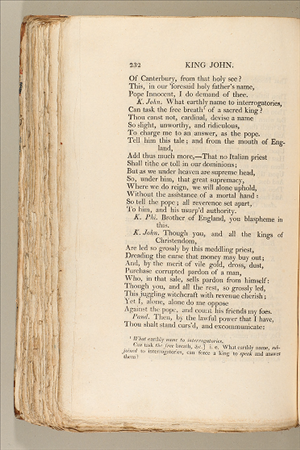 232 KING JOHN.
Of Canterbury, from that holy see?
This, in our 'foresaid holy father's name,
Pope Innocent, I do demand of thee.
K. John. What earthly name to interrogatories,
Can task the free breath¹ of a sacred king?
Thou canst not, cardinal, devise a name
So slight, unworthy, and ridiculous,
To charge me to an answer, as the pope.
Tell him this tale; and from the mouth of Eng-
land,
Add thus much more,—That no Italian priest
Shall tithe or toll in our dominions;
But as we under heaven are supreme head,
So, under him, that great supremacy,
Where we do reign, we will alone uphold,
Without the assistance of a mortal hand:
So tell the pope; all reverence set apart,
To him, and his usurp'd authority.
K. Phi. Brother of England, you blaspheme in
this.
K. John. Though you, and all the kings of
Christendom,
Are led so grossly by this meddling priest,
Dreading the curse that money may buy out;
And, by the merit of vile gold, dross, dust,
Purchase corrupted pardon of a man,
Who, in that sale, sells pardon from himself:
Though you, and all the rest, so grossly led,
This juggling witchcraft with revenue cherish;
Yet I, alone, alone do me oppose
Against the pope, and count his friends my foes.
Pand. Then, by the lawful power that I have,
Thou shalt stand curs'd, and excommunicate:
¹ What earthly name to interrogatories,
Can task the free breath, &c.] i. e. What earthly name, sub-
joined to interrogatories, can force a king to speak and answer
them?